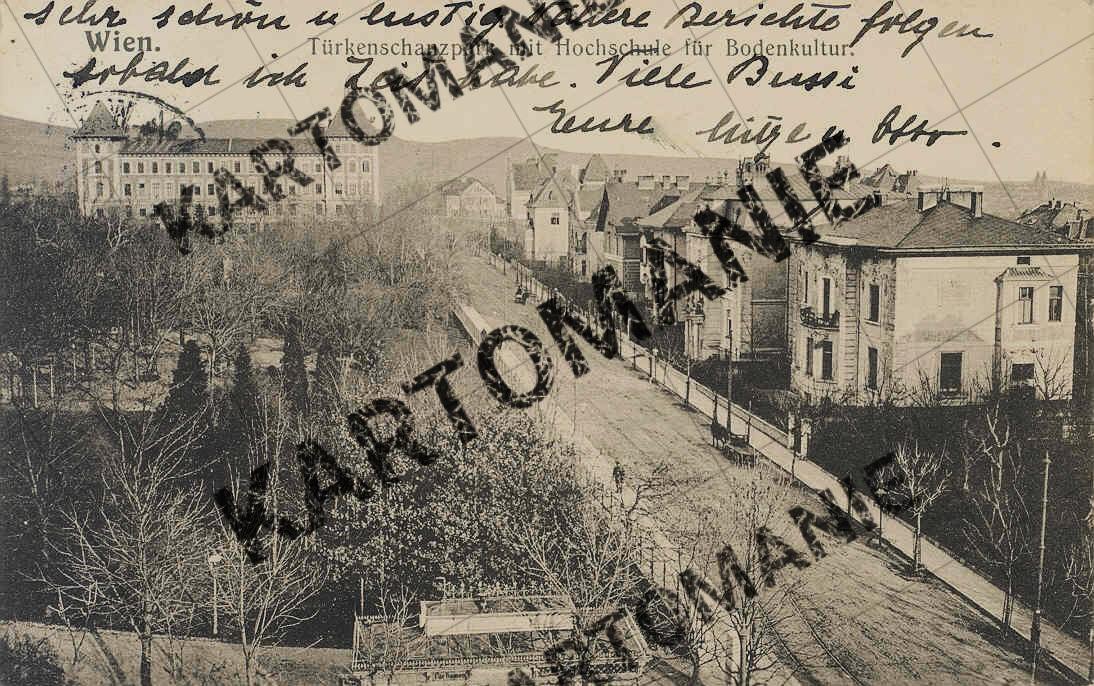 sehr schön u lustig. Nähere Berichte folgen
Wien.
Türkenschanzpark mit Hochschule für Bodenkultur.
sobald ich Zeit habe. Viele Bussi
Eure u Otto.
KARTOMANIE
KARTOMANIE
KARTOMANIE
KARTOMANIE